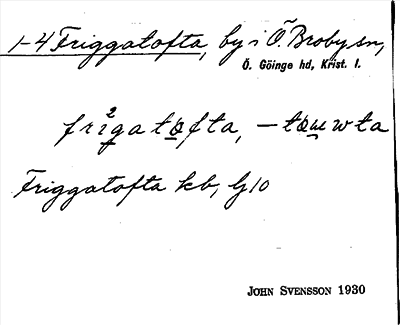 1-4 Friggatofta, by i Ö. Broby sn,
Ö. Göinge hd, Krist. l.
fri²gatofta, -touwta
Friggatofta kb, Gj10
JOHN SVENSSON 1930